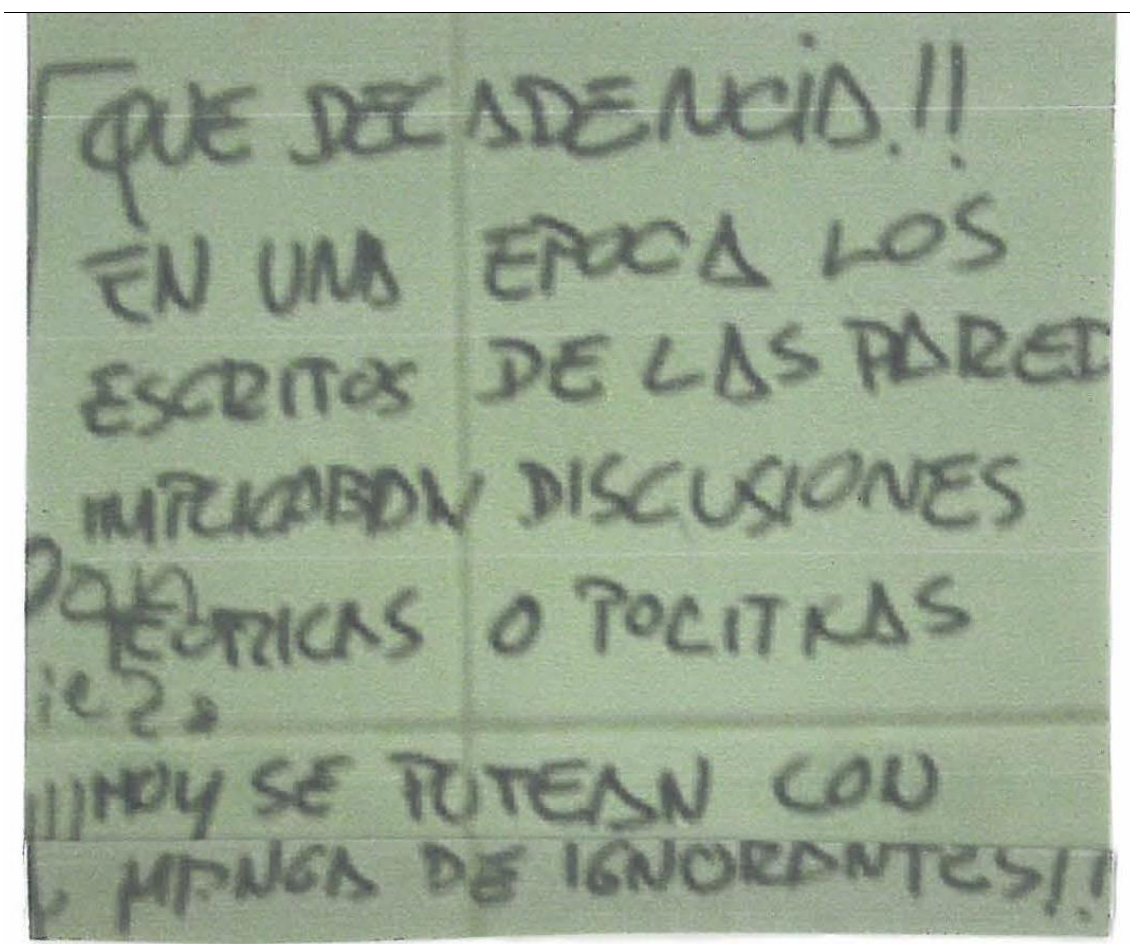 QUE DECADENCIA.!!
EN UNA EPOCA LOS
ESCRITOS DE LAS PARED
IMPLICABAN DISCUSIONES
TEORICAS O POLITICAS
HOY SE PUTEAN CON
MANGA DE IGNORANTES!!